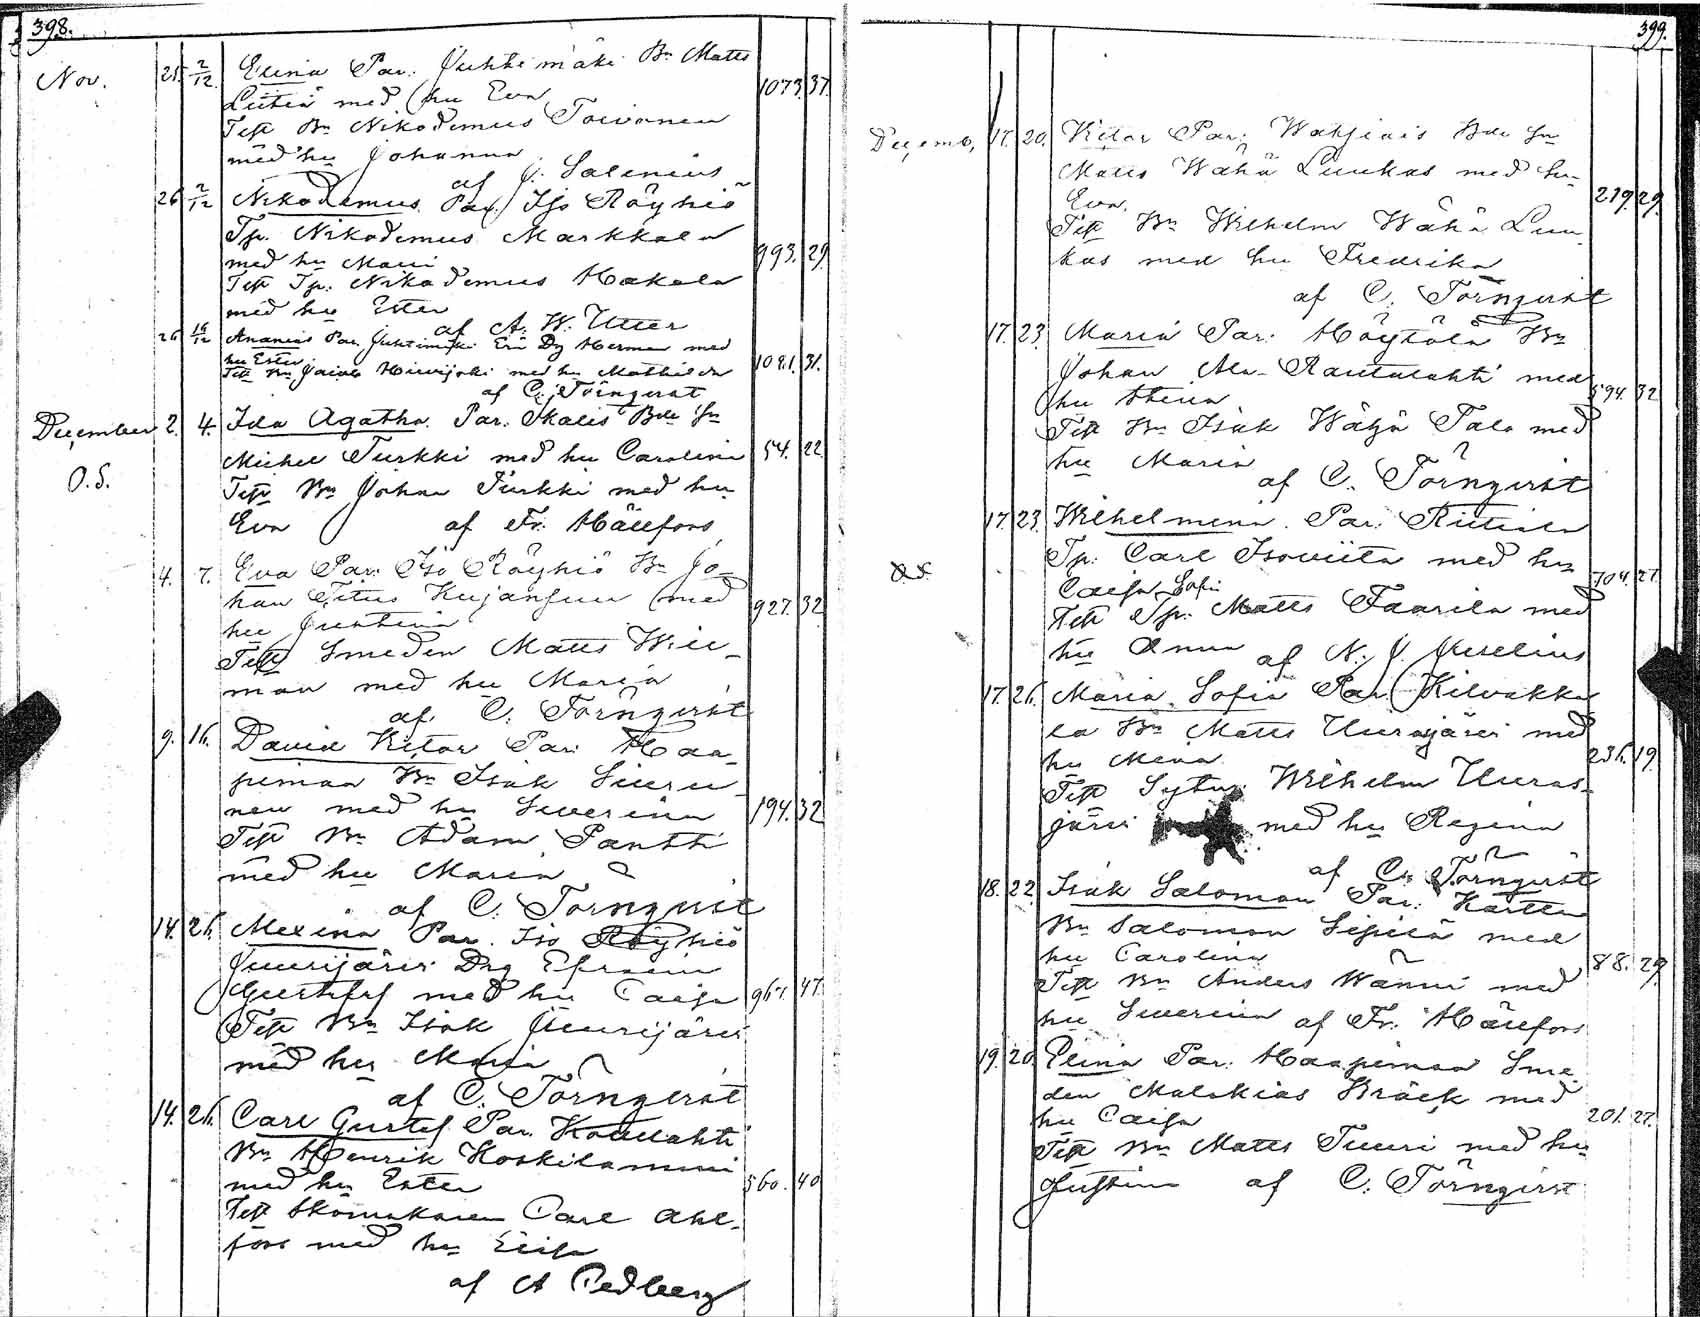 398.
Nov. 25. 2/12 Elina Par. Juhtimäki Bn Matts 1073. 37.
med hu Eva
Test Bn Nikodemus Toivonen
med hu Johanna
af J. Salenius
26 2/12 Nikodemus. Par. Iso Röyhiö
Tp. Nikodemus Markkola 993. 29.
med hu Maria
Test Tp. Nikodemus Hakala
med hu Ester
af A. W. Utter
26 16/12 Ananias Par. Juhtimäki Dg Herman med
hu Ester 1081. 31.
Test Bn Jacob Hirvijoki med hu Mathilda
af C. Törnqvist
December 2. 4. Ida Agatha. Par. Skalis Bde Sn
Michel Turkki med hu Carolina 54. 22.
O.S. Test Bn Johan Turkki med hu
Eva af Fr. Hällfors
4. 7. Eva Par. Iso Röyhiö Bn Jo-
han Titus Kujanpuu med 927. 32.
hu Justina
Test Smeden Matts Will-
man med hu Maria
af C. Törnqvist
9. 16. David Victor Par. Haa-
piman Bn Isak Siuru-
nen med hu Severina 194. 32
Test Bn Adam Pantti
med hu Maria
af C. Törnqvist
14. 26. Mexina Par. Iso Röyhiö
Juurijärvi Drg Efraim
Gustafsf med hu Caisa 967. 47.
Test Bn Isak Juurijärvi
med hu Maria
af C. Törnqvist
14. 26. Carl Gustaf Par. Koulahti
Bn Henrik Koskilammi
med hu Ester 560. 40
Test Skomakaren Carl Ahl-
fors med hu Lisa
af A Hedberg
399.
Decemb, 17. 20. Victor Par. Wahjiais Bde Sn
Matts Wähä Luukas med hu
Eva. 219. 29.
Test Bn Wilhelm Wähä Luu-
kas med hu Fredrika
af C. Törnqvist
17. 23. Maria Par. Höytölä Bn
Johan Ala-Rautalahti med
hu Stina 594. 32
Test Bn Isak Wähä Talo med
hu Maria
af C. Törnqvist
17. 23. Wilhelmina. Par. Riitiala
Tp. Carl Isoviita med hu
Caisa Sofia 704. 27.
Test Tp. Matts Faarila med
hu Anna af N. J. Juselius
17. 26. Maria Sofia Par. Kilvakka
la Bn Matts Uurasjärvi med
hu Miina 236. 19.
Test Wilhelm Uuras-
järvi med hu Regina
af C. Törnqvist
18. 22. Isak Salomon Par. Karttu
Bn Salomon Sipilä med
hu Carolina 88. 29.
Test Bn Anders Wänni med
hu Severina af Fr. Hällfors
19. 20. Elina Par. Haapiman Sme
den Malakias Bräck med
hu Caisa 201. 27.
Test Bn Matts Tuuri med hu
Justina af C. Törnqvist